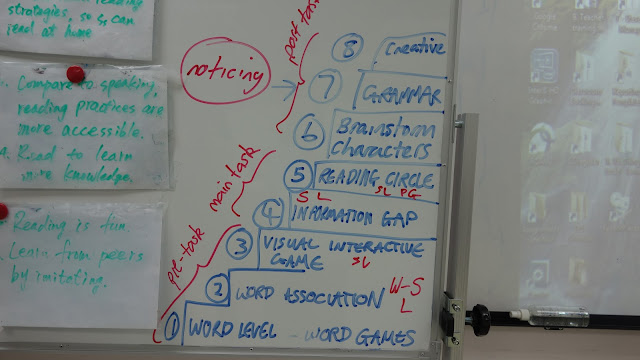 strategies, so Ss can
read at home
Compare to speaking,
reading practices are
more accessible.
4. Read to learn
more knowledge.
Reading is fun.
Learn from peers
by imitating.
noticing
post task
main task
pre-task
8 Creative
7 GRAMMAR
6 Brainstorm
Characters
5 READING CIRCLE
SL PG
4 INFORMATION GAP
S L
3 VISUAL INTERACTIVE
GAME SL
2 WORD ASSOCIATION W-S
L
1 WORD LEVEL - WORD GAMES